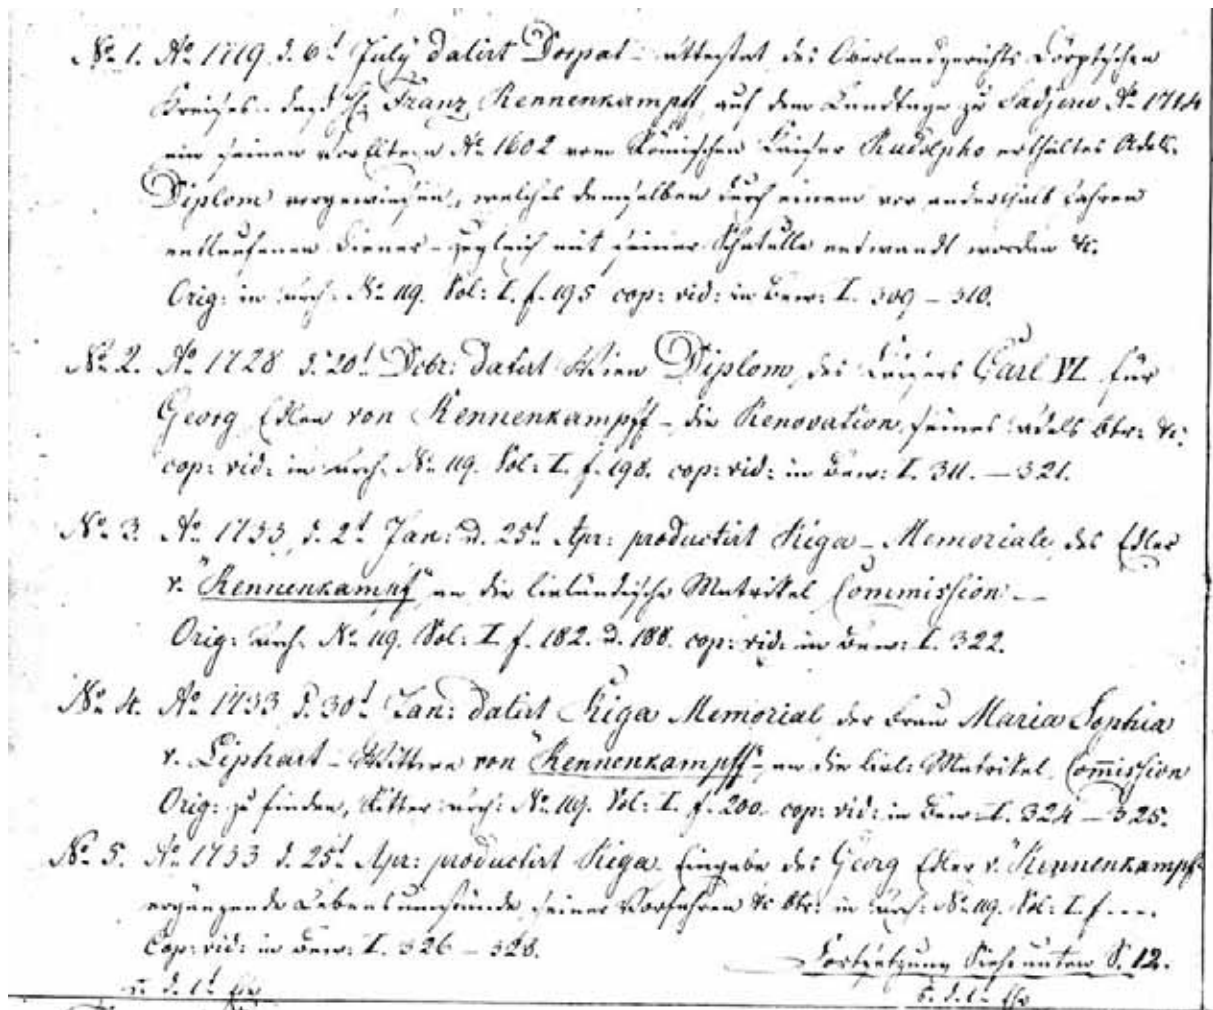 No 1. Ao 1719 d. 6t July datirt Dorpat – Attestat des Oberlandgerichts Dörptschen
Kreises – daß Hr Franz Rennenkampff auf dem Landtage zu Ao 1714
ein seinen Vorältern Ao 1602 vom Römischen Kaiser Rudolpho ertheiltes Adels-
Diplom vorgewiesen, welches demselben durch einem vor anderthalb Jahren
entlaufenen Diener – zugleich mit seiner Schatulle entwandt worden &c.
Orig: in Arch: No 119. Vol: I. f. 195 cop: vid: in Bew: I. 309 – 310.
No 2. Ao 1728 d. 20t Dcbr: datirt Wien Diplom des Kaisers Carl VI. für
Georg Edlen von Rennenkampff – die Renovation seines Adels btr: &c:
cop: vid: in Arch: No 119. Vol: I. f. 198. cop: vid: in Bew: I. 311. – 321.
No 3. Ao 1733 d. 2t Jan: u. 25t Apr: productirt Riga – Memoriale des Edler
v. "Rennenkampff" an die livländische Matrikel Commission –
Orig: Arch: No 119. Vol: I. f. 182. u. 188. cop: vid: in Bew: I. 322.
No 4. Ao 1733 d. 30t Jan: datirt Riga Memorial der Frau Maria Sophia
v. Liphart – Wittwe von "Rennenkampff" – an die livl: Matrikel Commission
Orig: zu finden, Ritter Arch: No 119. Vol: I. f. 200. cop: vid: in Bew: I. 324 – 325.
No 5. Ao 1733 d. 25t Apr: productirt Riga. Eingabe des Georg Edler v. "Rennenkampff"
ergänzende Lebensumstände seiner Vorfahren &c btr: in Arch: No 119. Vol: I. f. ....
Cop: vid: in Bew: I. 326 – 328.
Fortsetzung Siehe unten S. 12.